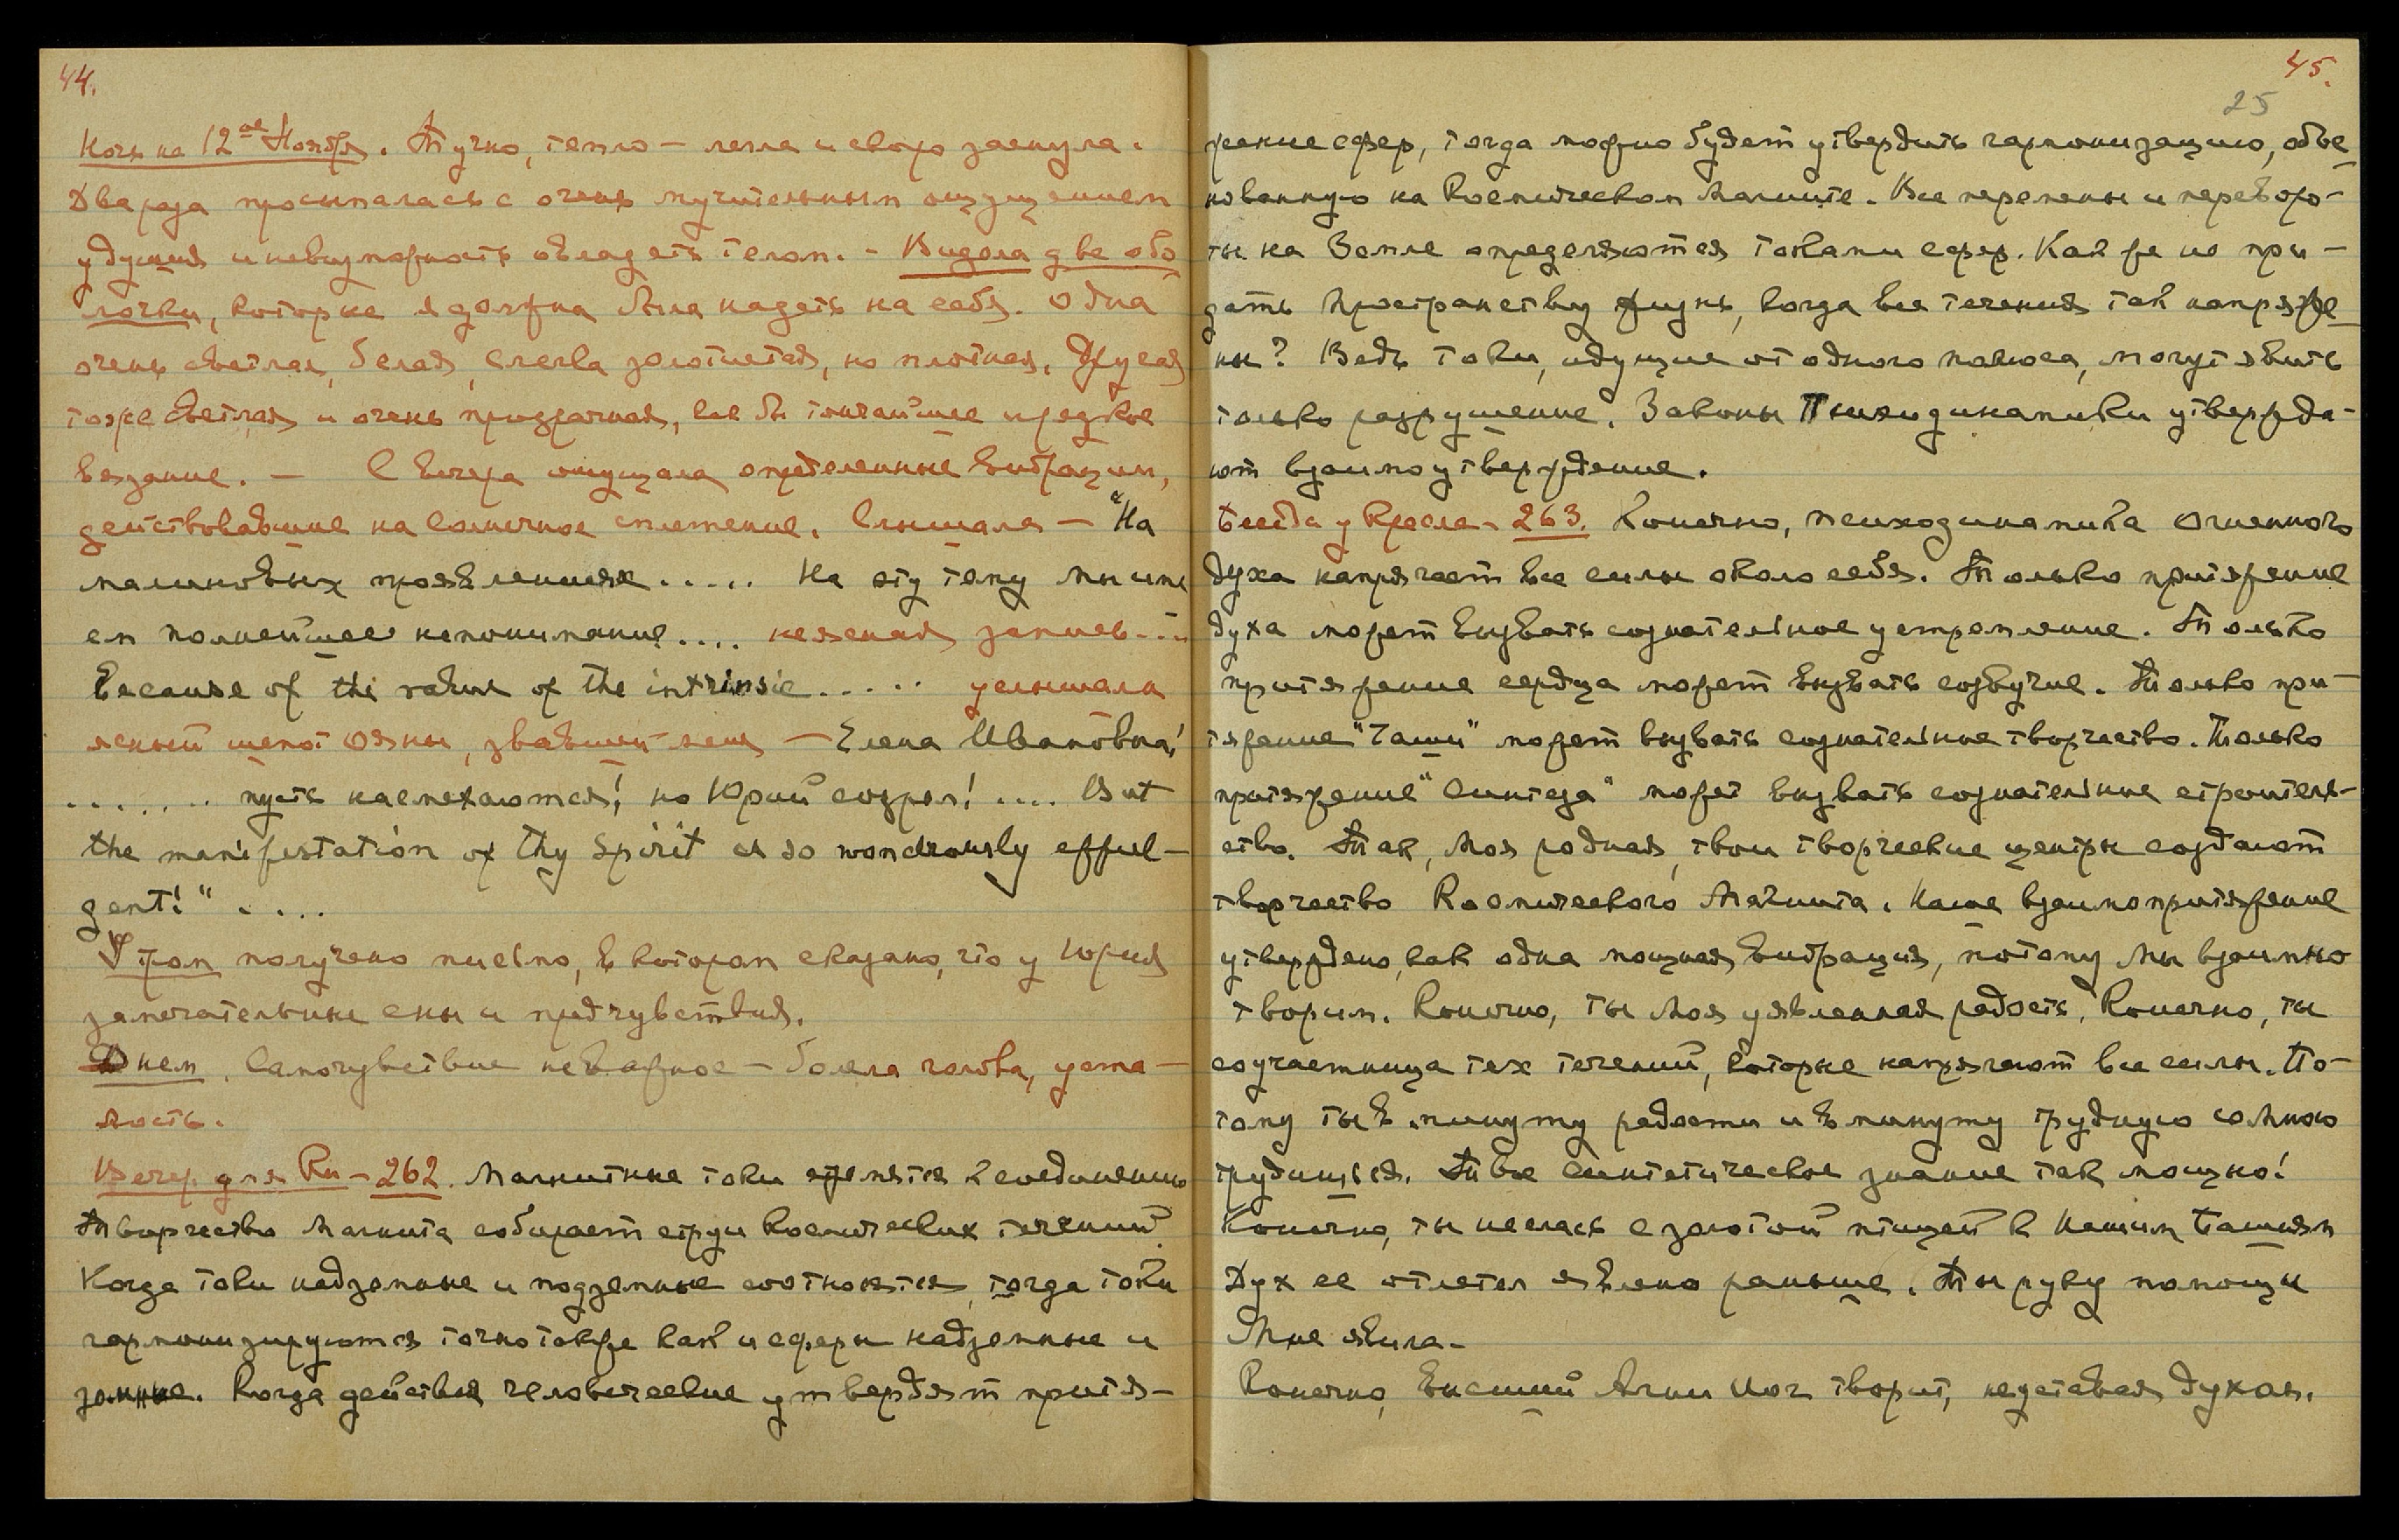 44.
Ночь на 12ое Ноября. Тучно, тепло — легла и скоро заснула.
Два раза просыпалась с очень мучительным ощущением
удушия и невозможность овладеть телом. - Видела две обо-
лочки, которые я должна была надеть на себя. Одна
очень светлая, белая, слегка золотистая, но плотная, другая
тоже светлая и очень прозрачная, как бы тончайшее и редкое
вязание. — С вечера ощущала определенные вибрации,
действовавшие на солнечное сплетение. Слышала — "На
малиновых проявлениях..... На эту тему мы име
ем полнейшее непонимание.... неясная запись...
Because of the value of the intrinsic..... услышала
ясный шепот Ояны, звавшей меня — Елена Ивановна!
....... пусть насмехаются! но Юрий созрел! .... But
the manifestation of Thy Spirit is so wondrously efful-
gent!" ....
Утром получено письмо, в котором сказано, что у Юрия
замечательные сны и предчувствия.
Днем. Самочувствие неважное — болела голова, уста-
лость.
Вечер. для Ки - 262. Магнитные токи стремятся к соединению
Творчество Магнита собирает струи Космических течений.
Когда токи надземные и подземные соотносятся, тогда токи
гармонизируются точно также как и сферы надземные и
земные. Когда действия человеческие утвердят притя-
45.
25
жение сфер, тогда можно будет утвердить гармонизацию, осно-
нованную на Космическом Магните. Все перемены и переворо-
ты на Земле определяются токами сфер. Как же не при-
дать Пространству жизнь, когда все течения так напряже-
ны? Ведь токи, идущие от одного полюса, могут явить
только разрушение. Законы Психодинамики утвержда-
ют взаимоутверждение.
Беседа у Кресла - 263. Конечно, психодинамика огненного
духа напрягает все силы около себя. Только притяжение
духа может вызвать сознательное устремление. Только
притяжение сердца может вызвать созвучие. Только при-
тяжение "Чаши" может вызвать сознательное творчество. Только
притяжение "Синтеза" может вызвать сознательное строитель-
ство. Так, Моя родная, твои творческие центры создают
творчество Космического Магнита. Наше взаимопритяжение
утверждено, как одна мощная вибрация, потому мы взаимно
творим. Конечно, ты Моя уявленная радость, Конечно, ты
соучастница тех течений, которые напрягают все силы. По-
тому ты в минуту радости и в минуту трудную со Мною
трудишься. Твое синтетическое знание так мощно!
Конечно, ты неслась с золотой птицей к Нашим Башням
Дух ее отлетел явлено раньше. Ты руку помощи
Мне явила.
Конечно, высший Агни Йог творит, не уставая духом.